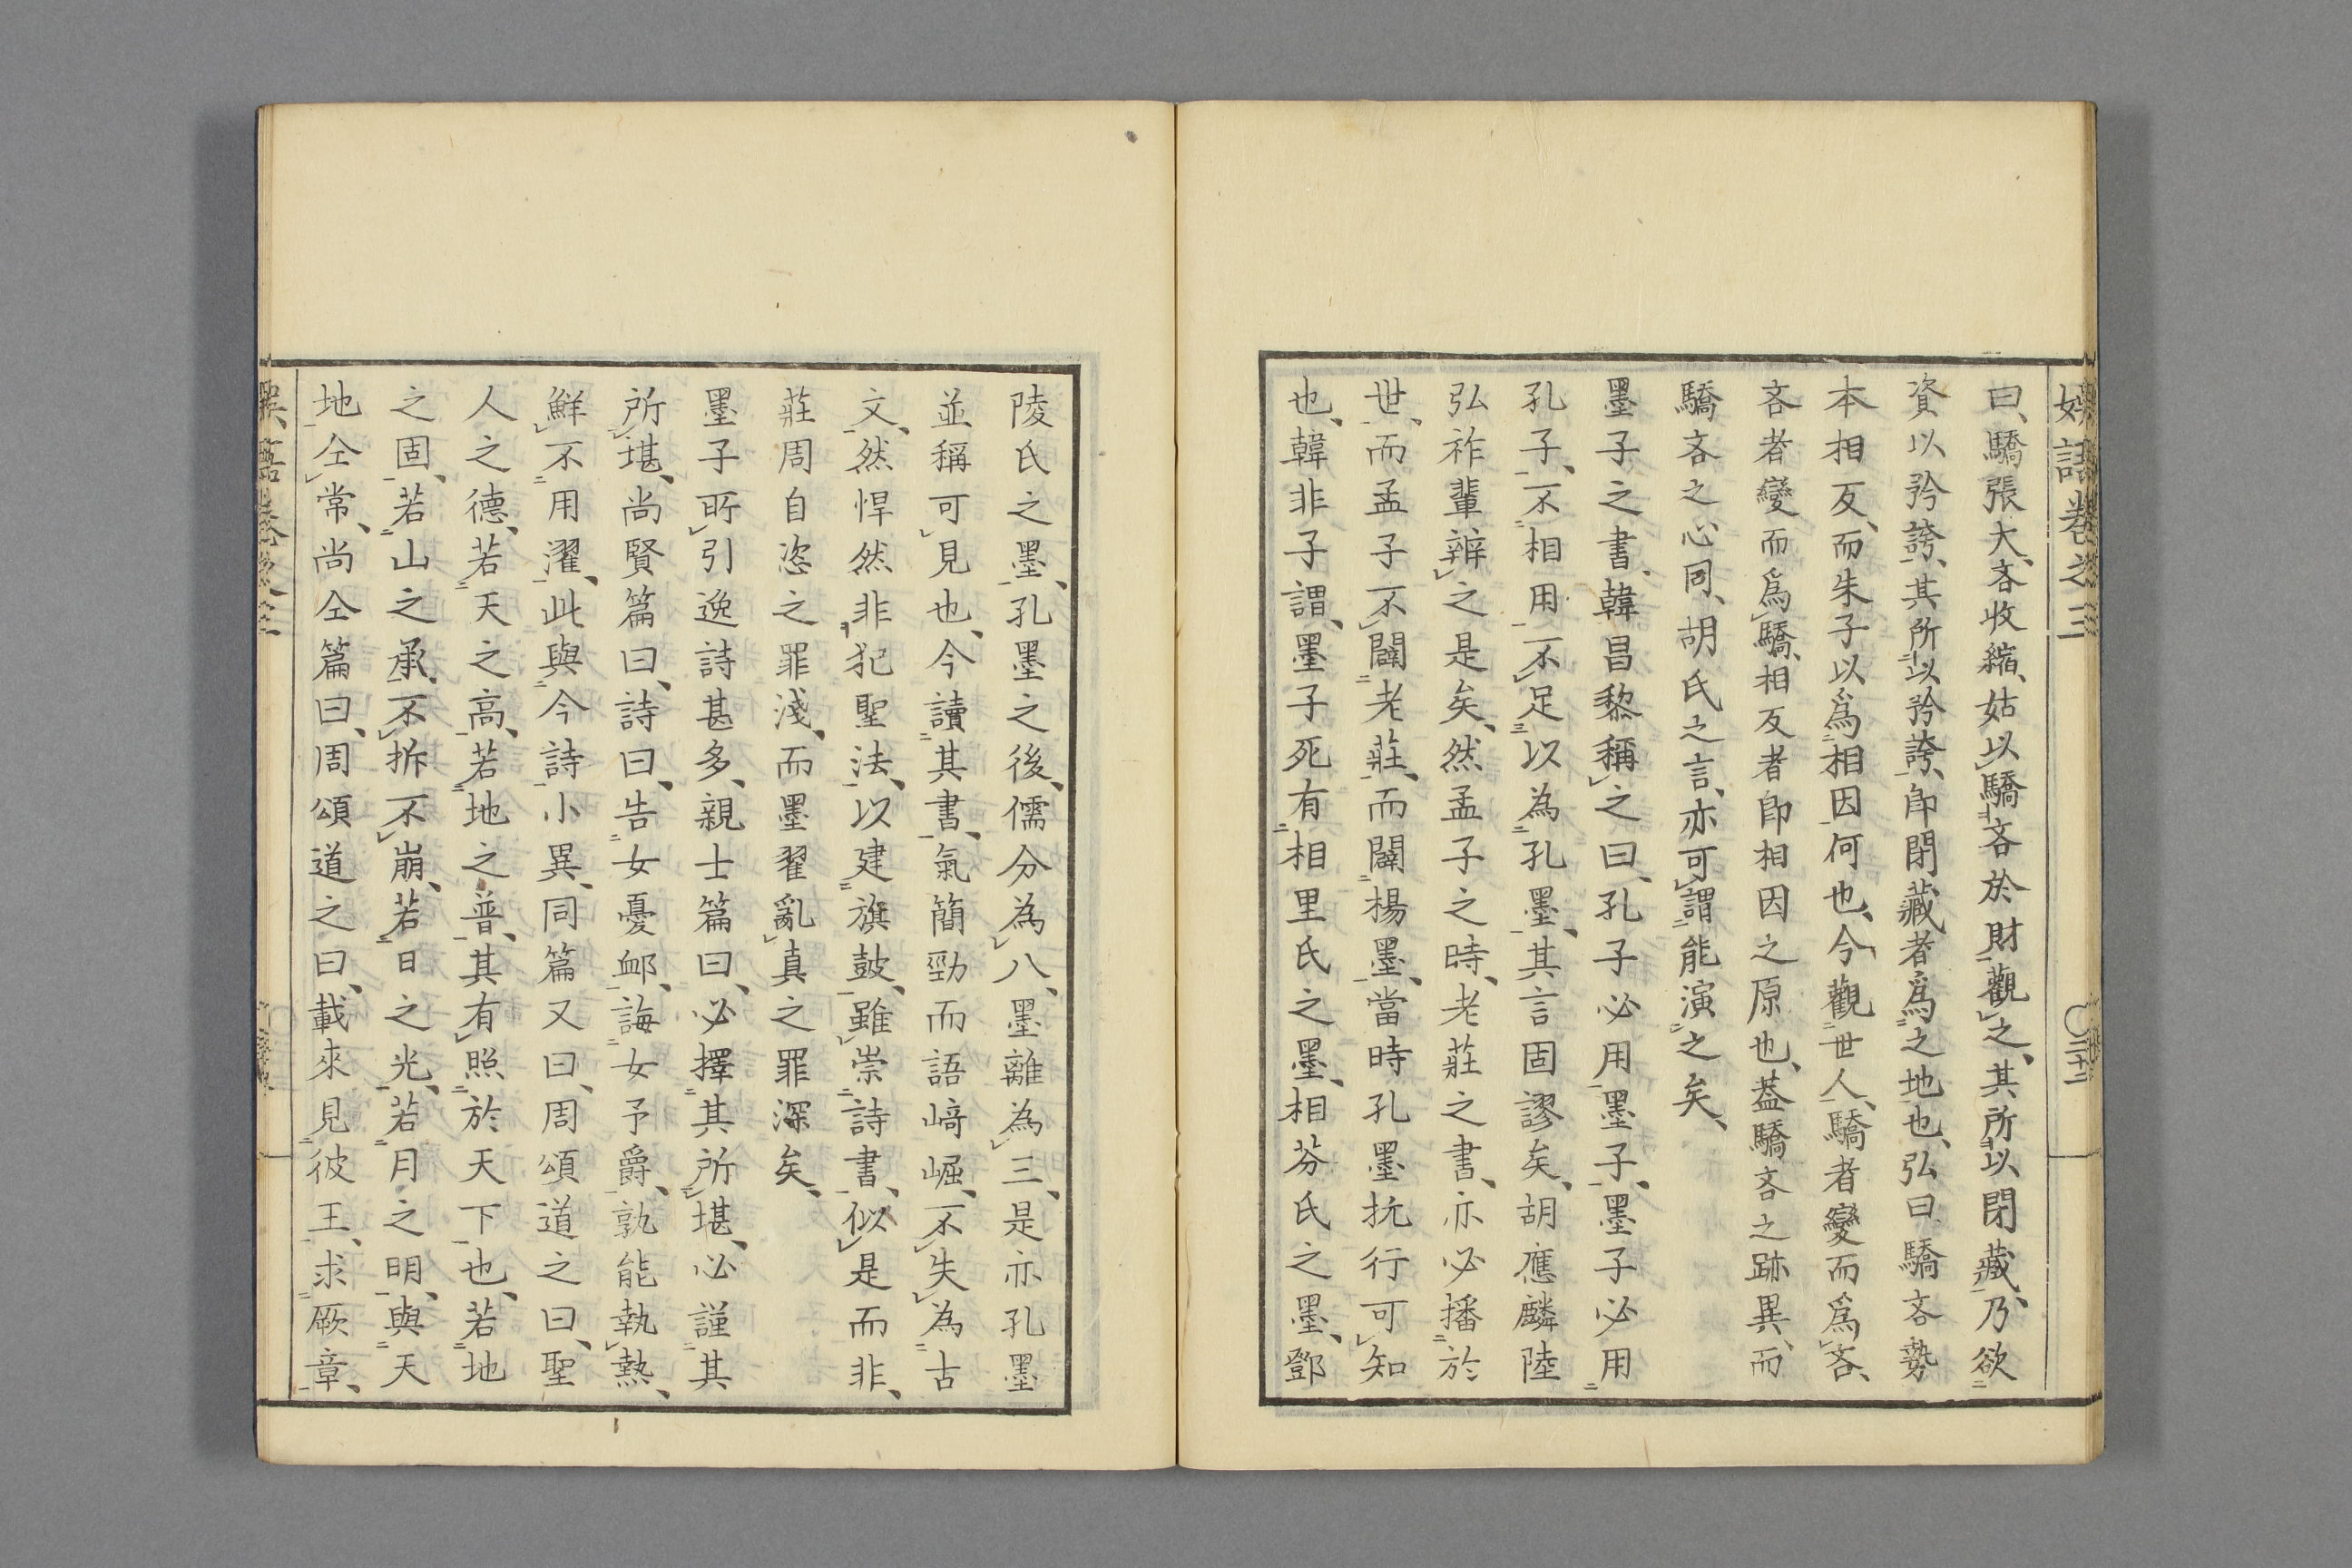 娯語卷之三 〇三十二
曰、驕張大、吝收縮、姑以驕吝於財觀之、其所以閉藏、乃欲
資以矜誇、其所以矜誇、即閉藏者爲之地也、弘曰驕吝勢
本相反、而朱子以爲相因何也、今觀世人、驕者變而爲吝、
吝者變而爲驕、相反者即相因之原也、葢驕吝之跡異、而
驕吝之心同、胡氏之言、亦可謂能演之矣、
墨子之書、韓昌黎稱之曰、孔子必用墨子、墨子必用
孔子、不相用、不足以為孔墨、其言固謬矣、胡應麟陸
弘祚輩辨之是矣、然孟子之時、老莊之書、亦必播於
世、而孟子不闢老莊、而闢楊墨、當時孔墨抗行可知
也、韓非子謂、墨子死有相里氏之墨、相芬氏之墨、鄧
陵氏之墨、孔墨之後、儒分為八、墨離為三、是亦孔墨
並稱可見也、今讀其書、氣簡勁而語﨑崛、不失為古
文、然悍然非犯聖法、以建旗鼓、雖崇詩書、似是而非、
莊周自恣之罪淺、而墨翟亂真之罪深矣、
墨子所引逸詩甚多、親士篇曰、必擇其所堪、必謹其
所堪、尚賢篇曰、詩曰、告女憂卹、誨女予爵、孰能執熱、
鮮不用濯、此與今詩小異、同篇又曰、周頌道之曰、聖
人之德、若天之高、若地之普、其有照於天下也、若地
之固、若山之承、不拆不崩、若日之光、若月之明、與天
地仝常、尚仝篇曰、周頌道之曰、載來見彼王、求厥章、